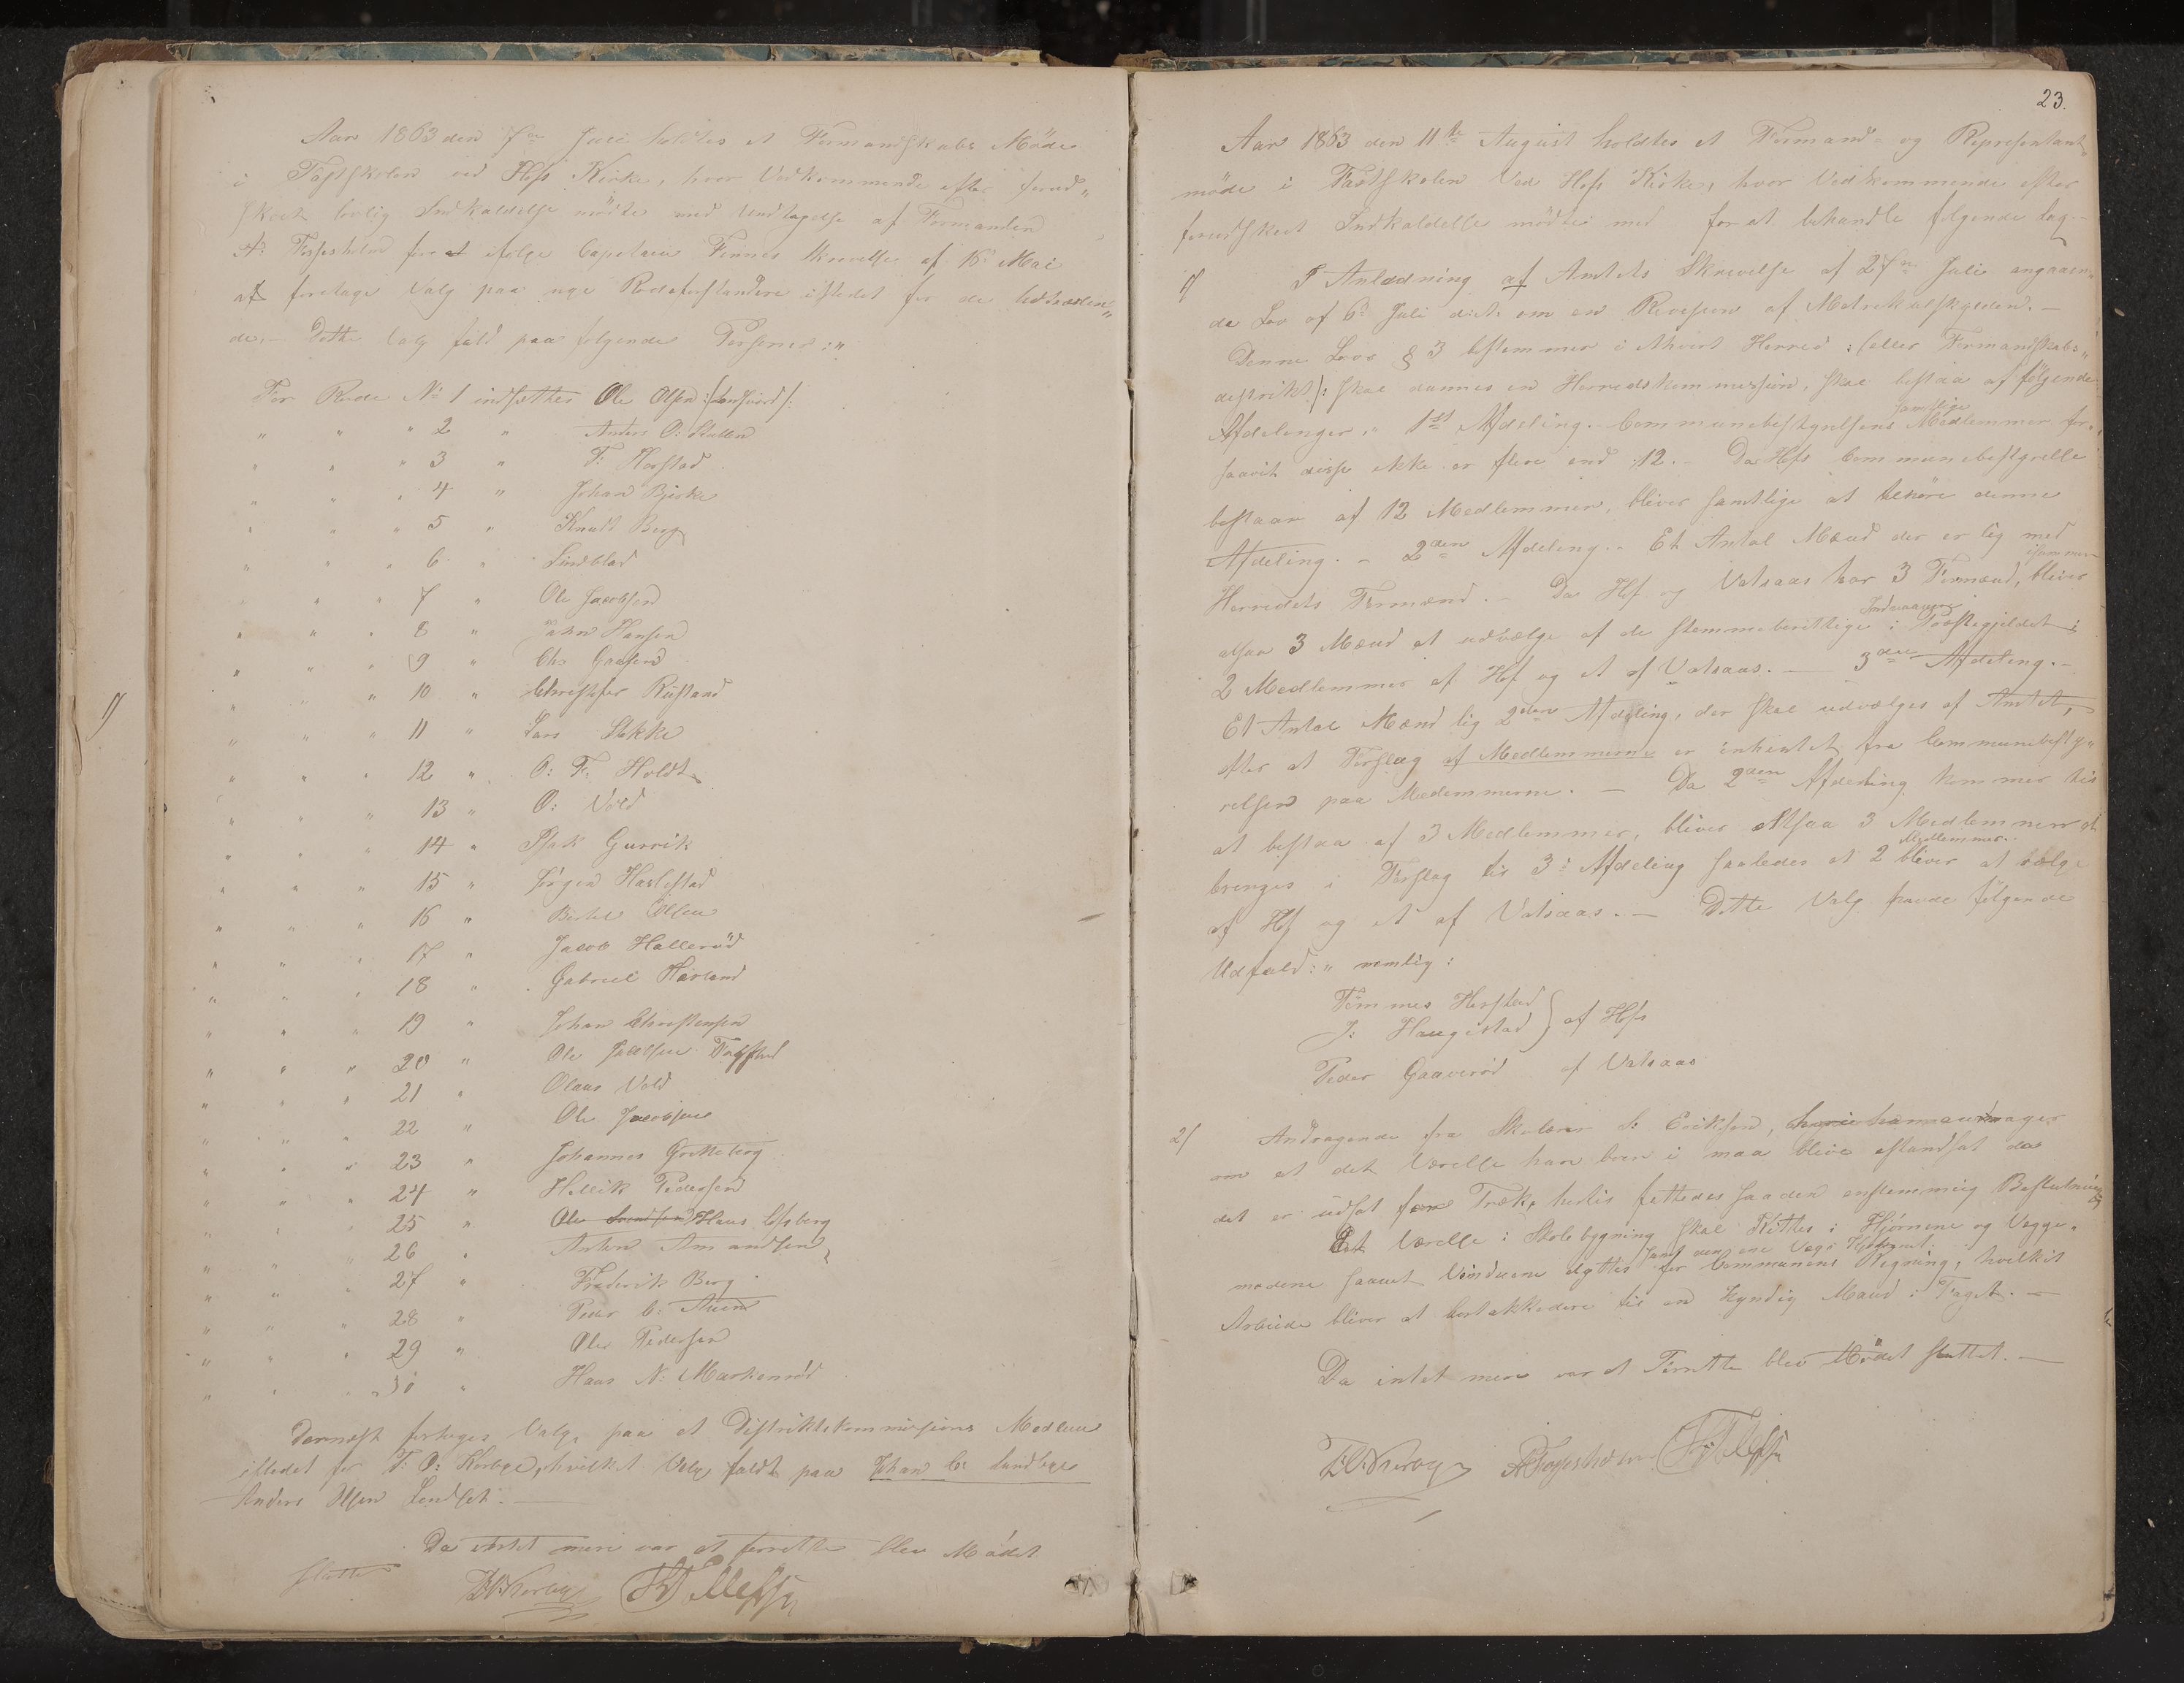 Aar 1863 den 7de Juli holdtes et Formandskabs Möde
i Fastskolen ved Hofs Kirke, hvor Vedkommende efter forud„
skeet lovlig Indkaldelse mödte med Undtagelse af Formanden
A: Fossesholm for at ifölge Capitain Finnes Skrivelse af 16 Mai
at foretage Valg paa nye Rodeforstandere istedet for de hidværen„
de. — Dette Valg fald paa fölgende Personer:„
For Rode No 1 indsættes Ole Olsen
„ „ „ 2 „ Anders O: Kullen
„ „ „ 3 „ T: Horstad
„ „ „ 4 „ Johan Bjerke
„ „ „ 5 „ Knudt Berg
„ „ „ 6 „ Lindblad
„ „ „ 7 „ Ole Jacobsen
„ „ „ 8 „ John Hansen
„ „ „ 9 „ Chr Graesen
„ „ „ 10 „ Christofer Rustand
„ „ „ 11 „ Lars Stokke
„ „ „ 12 „ O: F: Holdt
„ „ „ 13 „ O: Vold
„ „ „ 14 „ Isak Gurrik
„ „ „ 15 „ Jörgen Haslestad
„ „ „ 16 „ Bertel Olsen
„ „ „ 17 „ Jacob Halleröd
„ „ „ 18 „ Gabriel Hasland
„ „ „ 19 „ Johan Christensen
„ „ „ 20 „ Ole
„ „ „ 21 „ Olaus Vold
„ „ „ 22 „ Ole Jacobsen
„ „ „ 23 „ Johannes Grötteberg
„ „ „ 24 „ Hellik Pedersen
„ „ „ 25 „ Hans Efsberg
„ „ „ 26 „ Anton Amundsen
„ „ „ 27 „ Frederik Berg
„ „ „ 28 „ Peder C:
„ „ „ 29 „ Ole Pedersen
„ „ „ 30 „ Hans N: Markeröd
1)
Dernæst foretoges Valg paa et Distriktskommissions Medlem
istedet for T: O: Korbye, hvilket Valg faldt paa Johan C: Lundbye
Anders Olsen Lendset. —
Da intet mere var at forrette blev Mödet
sluttet
23.
Aar 1863 den 11te August holdtes et Formand- og Repræsentant„
möde i Fastskolen Ved Hofs Kirke, hvor Vedkommende efter
forudskeet Indkaldelse mödte med for at behandle fölgende Sag. —
1) I Anledning af Amtets Skrivelse af 27de Juli angaaen„
de Lov af 6te Juli om en Revision af Matrikulskylden. —
Denne Lovs § 3 bestemmer i Ethvert Herred :(eller Formandskabs„
destrikt): skal dannes en Herredskommission, skal bestaa af fölgende
Afdelinger:„ 1ste Afdeling. Communebestyrelsens samtlige Medlemmer for„
saavidt disse ikke er flere end 12. — Da Hofs Communebestyrelse
bestaar af 12 Medlemmer, bliver samtlige at tehöre denne
Afdeling. — 2den Afdeling. — Et Antal Mænd der er lig med
Herredets Formænd. — Da Hof og Vatsaas har 3 Formænd, bliver
altsaa 3 Mænd at udvælge af de stemmeberettige Indvaanere i Præstegjeldet:
2 Medlemmer af Hof og et af Vatsaas. — 3den Afdeling. —
Et Antal Mænd lig 2den Afdeling, der skal udvælges af Amtet,
efter at Forslag af Medlemmerne er inhentet fra Communebesty„
relsen paa Medemmerne. — Da 2den Afdeling kommer til
at bestaa af 3 Medlemmer, bliver Altsaa 3 Medlemmer at
bringes i Forslag til 3: Afdeling saaledes at 2 Medlemmer bliver at vælge
af Hof og et af Vatsaas. — Dette Valg havde fölgende
Udfald:„ nemlig:
Tommes Horstad
J: Haugestad } af Hofs
Peder Gaaveröd af Vatsaas
2) Andragende fra Skolelærer S: Eriksen,
om at det Værelse han boer i maa blive istandsat da
det er udsat for Træk, fattedes saaden enstemmig Beslutning
Et Værelse i Skolebygning skal Kittes i Hjörnene og Vegge„
modene saamt Vinduerne dyttes for Communens Regning, hvilket
Arbeide bliver at bortakkordere til en kyndig Mand i Faget. —
Da intet mere var at Forrette blev Mödet sluttet. —